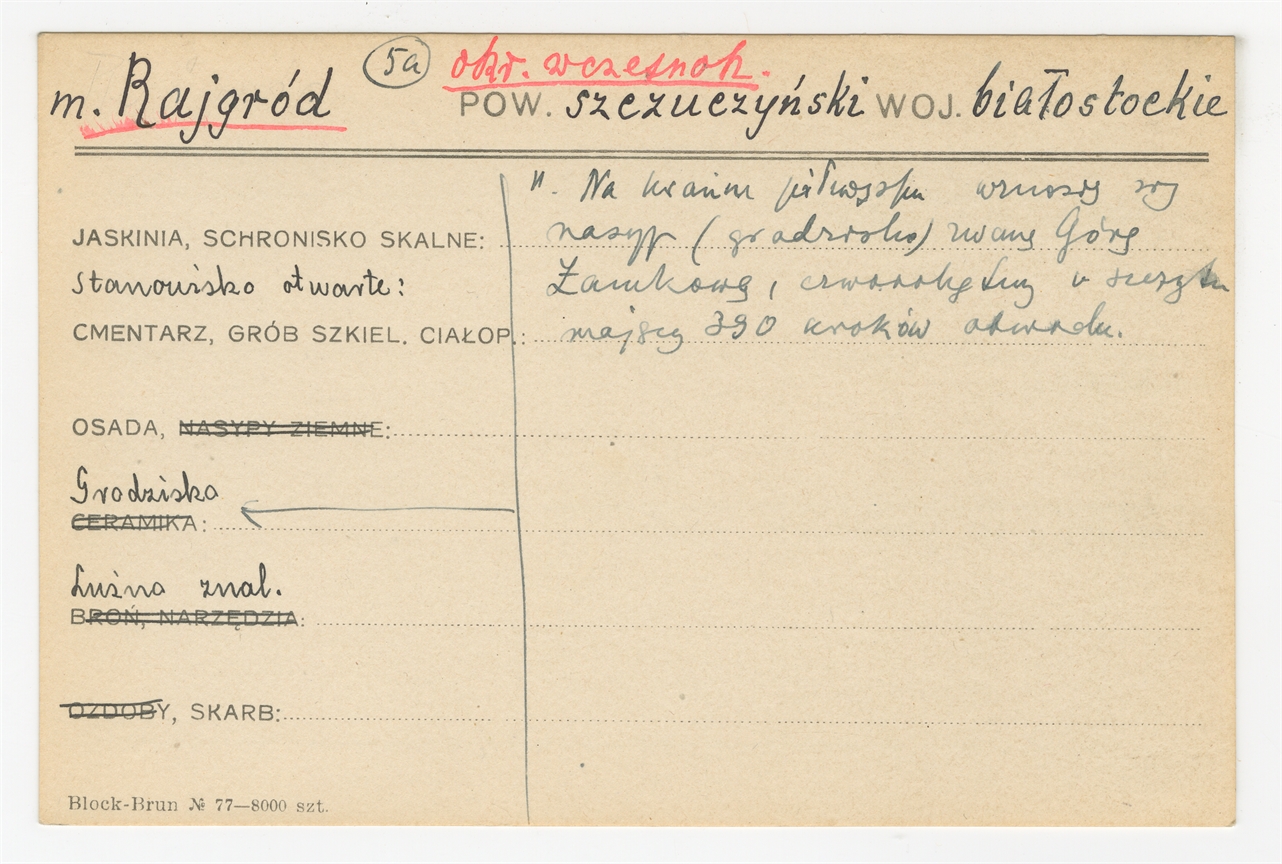 5a okr. wczesnoh.
m. Rajgród POW. szczuczyński WOJ. białostockie
". Na krańcu półwyspu wznosi się
JASKINIA, SCHRONISKO SKALNE: nasyp (grodzisko) zwany Górą
Stanowisko otwarte: Zamkową, czworokątny u szczytu
CMENTARZ, GRÓB SZKIEL. CIAŁOP.: mający 390 kroków obwodu.
OSADA, NASYPY ZIEMNE:
Grodzisko
CERAMIKA:
Luźno znal.
BROŃ, NARZĘDZIA:
OZDOBY, SKARB:
Block-Brun № 77—8000 szt.